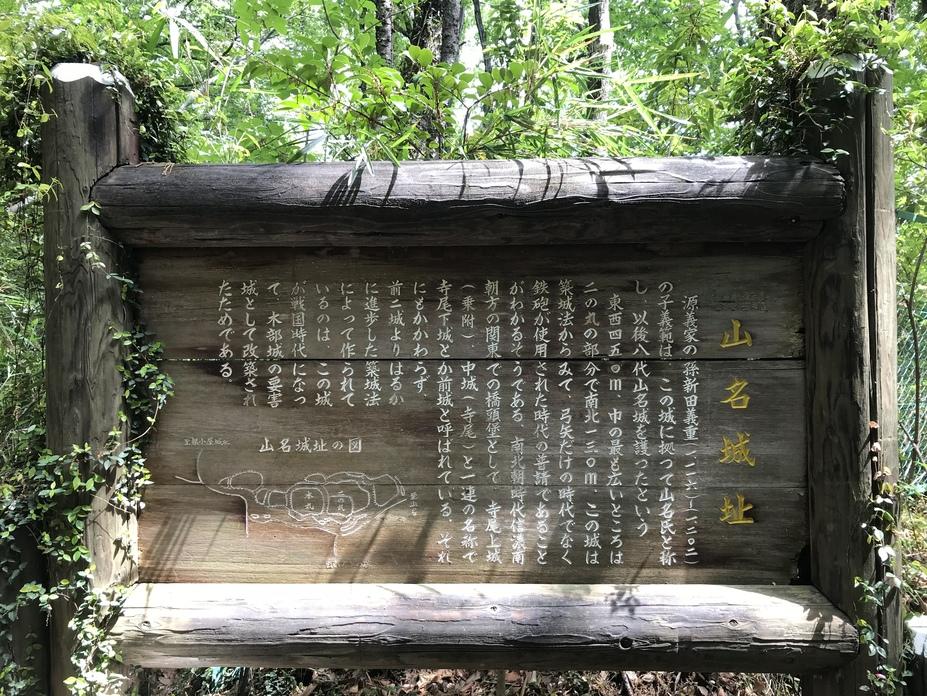 山名城址
源義家の孫新田義重(一一三六~一二〇二)
の子義範は、この城に拠つて山名氏と称
し、以後八代山名城を護つたという
東西四五〇m、巾の最も広いところは
二の丸の部分で南北一三〇m、この城は
築城法からみて、弓矢だけの時代でなく
鉄砲が使用された時代の普請であること
がわかるそうである、南北朝時代信濃南
朝方の関東での橋頭堡として、寺尾上城
(乗附)中城(寺尾)と一連の名称で
寺尾下城とか前城と呼ばれている、それ
にもかかわらず、
前二城よりはるか
に進歩した築城法
によって作られて
いるのは、この城
が戦国時代になっ
て、木部城の要害
城として改築され
たためである。
山名城址の図
本丸
二の丸